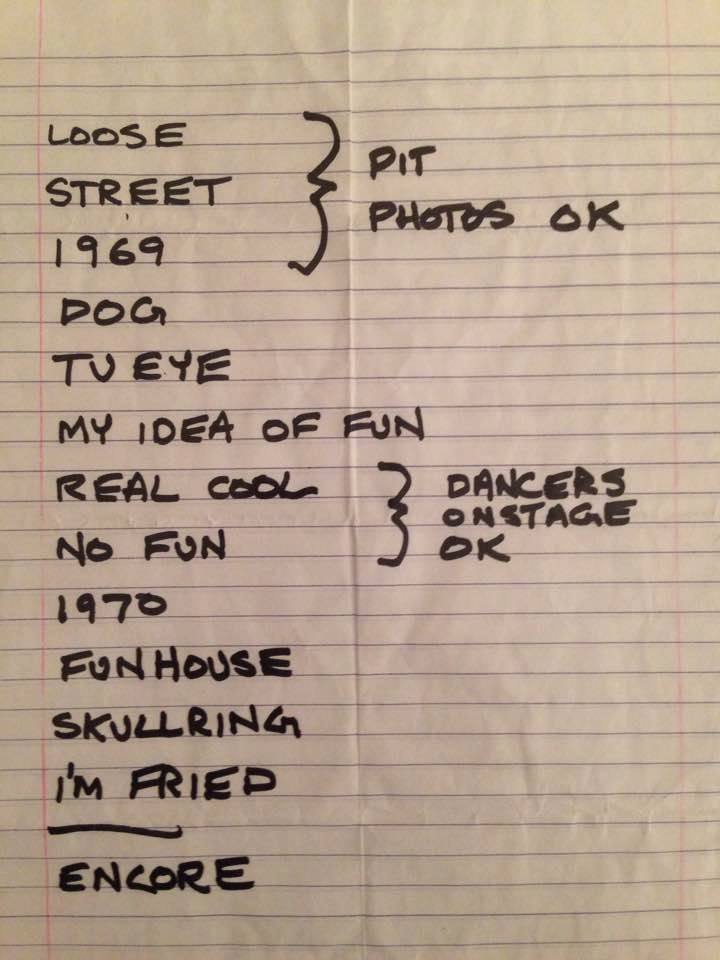 LOOSE
STREET
1969
PIT
PHOTOS OK
DOG
TV EYE
MY IDEA OF FUN
REAL COOL
NO FUN
DANCERS
ONSTAGE
OK
1970
FUNHOUSE
SKULLRING
I'M FRIED
ENCORE